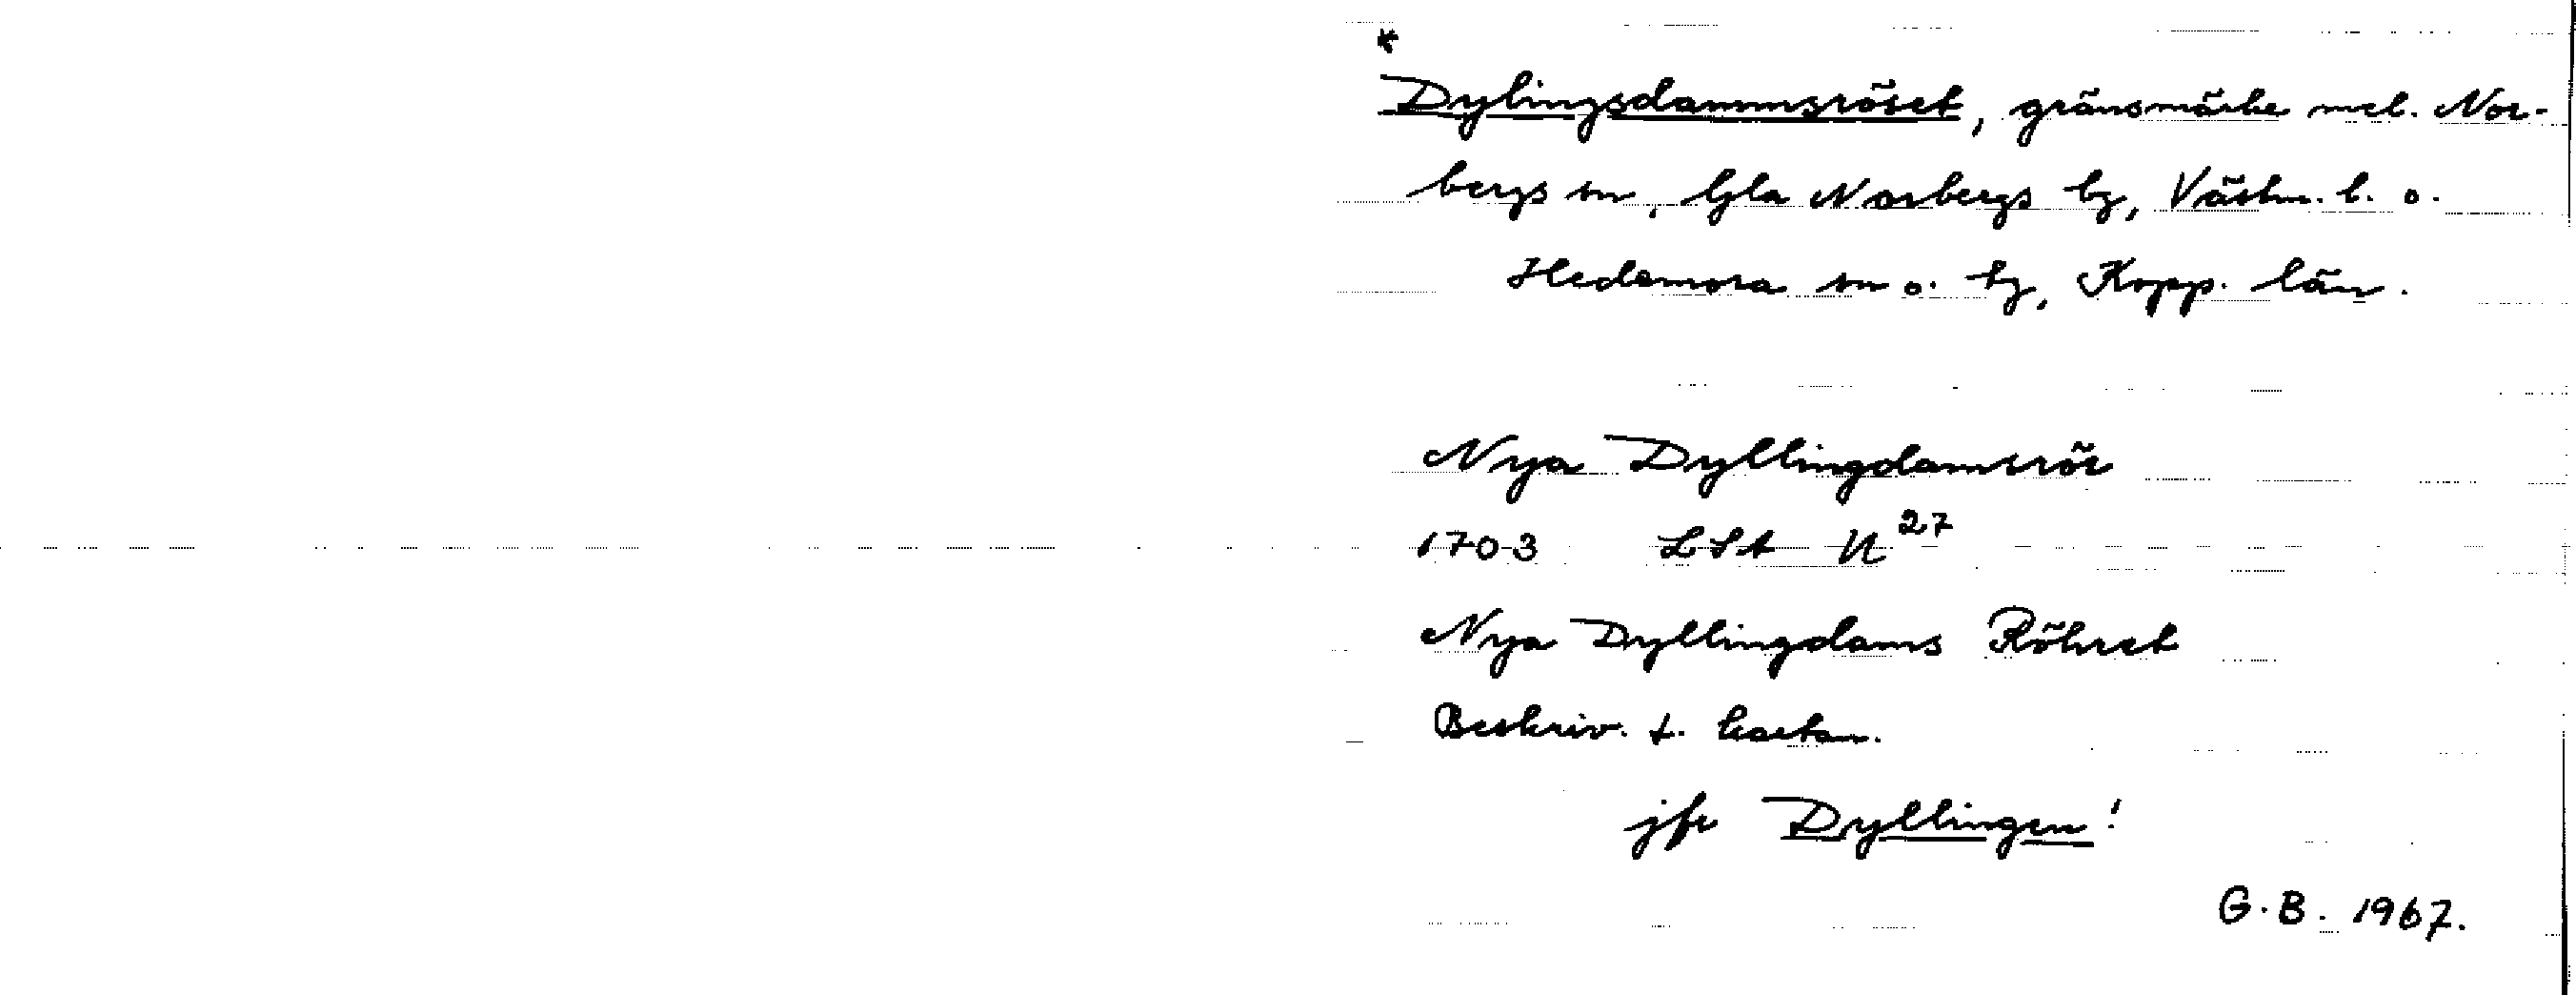 *
Dylingsdammsröset, gränsmärke mel. Nor-
bergs sn, Gla Norbergs bg, Västm. l. o.
Hedemora sn o. tg, Kopp. län.
Nya Dyllingdamsrör
1703 LSA U 27
Nya Dyllingdams Röhret
Beskriv. t. kartan.
jfr Dyllingen!
G.B. 1967.